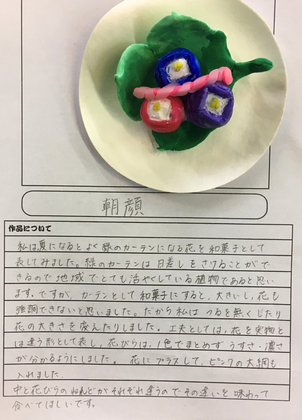 朝顔
作品について
私は夏になるとよく緑のカーテンになる花を和菓子として
表してみました。緑のカーテンは日差しをさけることがで
きるので地域でとても活やくしている植物であると思い
ます。ですが、カーテンとして和菓子にすると、大きいし、花も
強調できないと思いました。だから私はつるを無くしたり
花の大きさを変えたりしました。工夫としては、花を実物と
は違う形として表し、花びらは、1色でまとめず、うすさ・濃さ
が分かるようにしました。花にプラスして、ピンクの大綱も
入れました。
中と花びらのねんどがそれぞれ違うのでその違いを味わって
食べてほしいです。